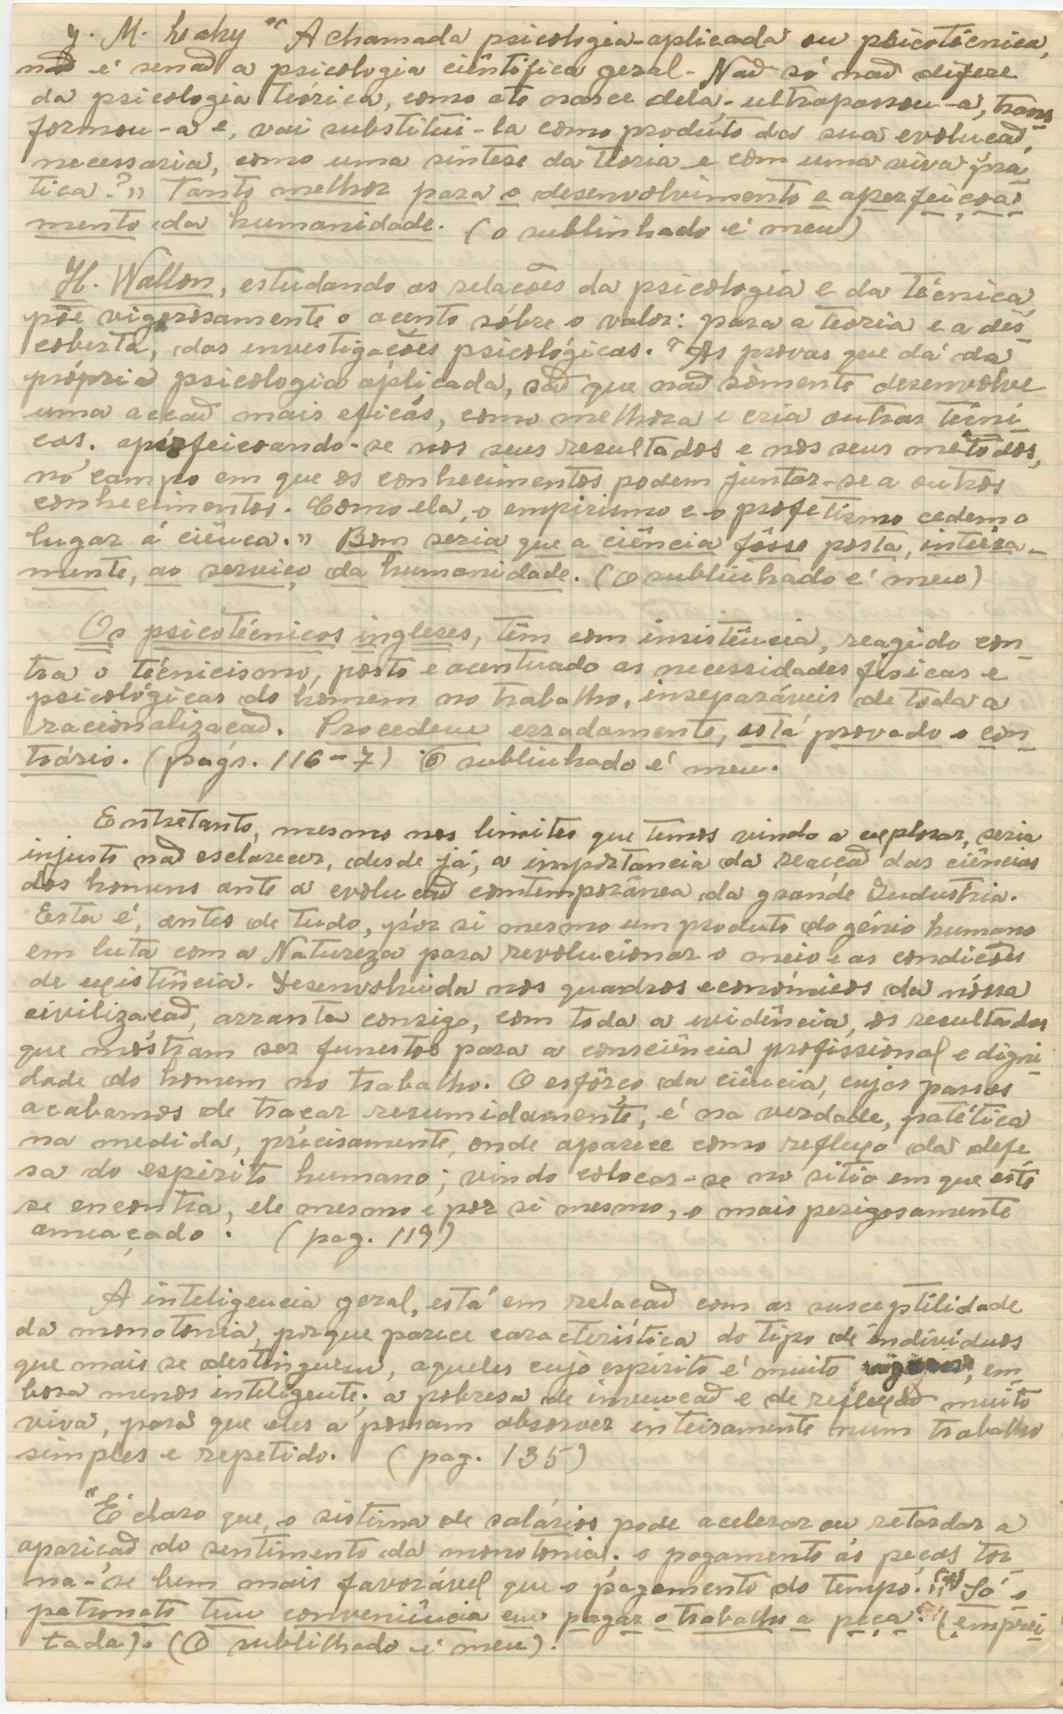 y. M. Lahy "A chamada psicologia-aplicada ou psicotécnica,
não é senão a psicologia ciêntífica geral - Não só não difere
da psicologia teórica, como até nasce dela - ultrapassou-a, trans
formou-a e, vai substitui-la como produto da sua evolução
necessaria, como uma sintese da teoria e com uma viva prá
tica?" Tanto melhor para o desenvolvimento e aperfeiçoa
mento da humanidade. (o sublinhado é meu)
H. Wallon, estudando as relacões da psicologia e da técnica
põe vigorosamente o acento sôbre o valor: para a teoria e a des
coberta, das investigacões psicológicas. "As provas que dá da
própria psicologia aplicada, são que não sòmente desenvolve
uma accão mais eficás, como melhora e cria outras técni
cas. aperfeicoando-se nos seus resultados e nos seus métodos,
no campo em que os conhecimentos podem juntar-se a outros
conhecimentos. Como ela, o empirismo e o profetismo cedem o
lugar á ciência." Bom seria que a ciência fôsse posta, inteira-
mente, ao serviço da humanidade. (o sublinhado é meu)
Os psicotécnicos ingleses, têm com insistência, reagido con-
tra o técnicismo, posto e acentuado as necessidades físicas e
psicológicas do homem no trabalho, inseparáveis de toda a
racionalizacão. Procedem erradamente, está provado o con-
trário. (pags. 116-7) O sublinhado é meu.
Entretanto, mesmo nos limites que temos vindo a explorar, seria
injusto não esclarecer, desde já, a importancia da reacção das ciências
dos homens ante a evolução contemporânea da grande Industria.
Esta é, antes de tudo, pór si mesmo um produto do génio humano
em luta com a Natureza para revolucionar o meio e as condicões
de existência. Desenvolvida nos quadros económicos da nóssa
civilizacão, arranta consigo, com toda a evidência, os resultados
que móstram ser funestos para a consciência profissional e digni-
dade do homem no trabalho. O esfôrço da ciência, cujos passos
acabamos de traçar resumidamente, é na verdade, patética
na medida, précisamente, onde aparece como reflexo da defe
sa do espirito humano; vindo colocar-se no sitio em que este
se encontra, ele mesmo e por si mesmo, o mais perigosamente
ameaçado. (pag. 119)
A inteligencia geral, está em relacão com as susceptilidade
da monotonia, porque parece caracteristica do tipo de individuos
que mais se destinguem, aqueles cujo espirito é muito em
bora menos inteligente; a pobresa de invencão e de reflexão muito
viva, para que eles a possam absorver enteiramente num trabalho
simples e repetido. (pag. 135)
"É claro que o sistema de salários pode acelerar ou retardar a
aparição do sentimento da monotonia. o pagamento ás peças tor
na-se bem mais favorável que o págamento do tempo." Só o
patronato tem conveniência em pagar o trabalho a peça. (emprei
tada). (O sublilhado é meu).